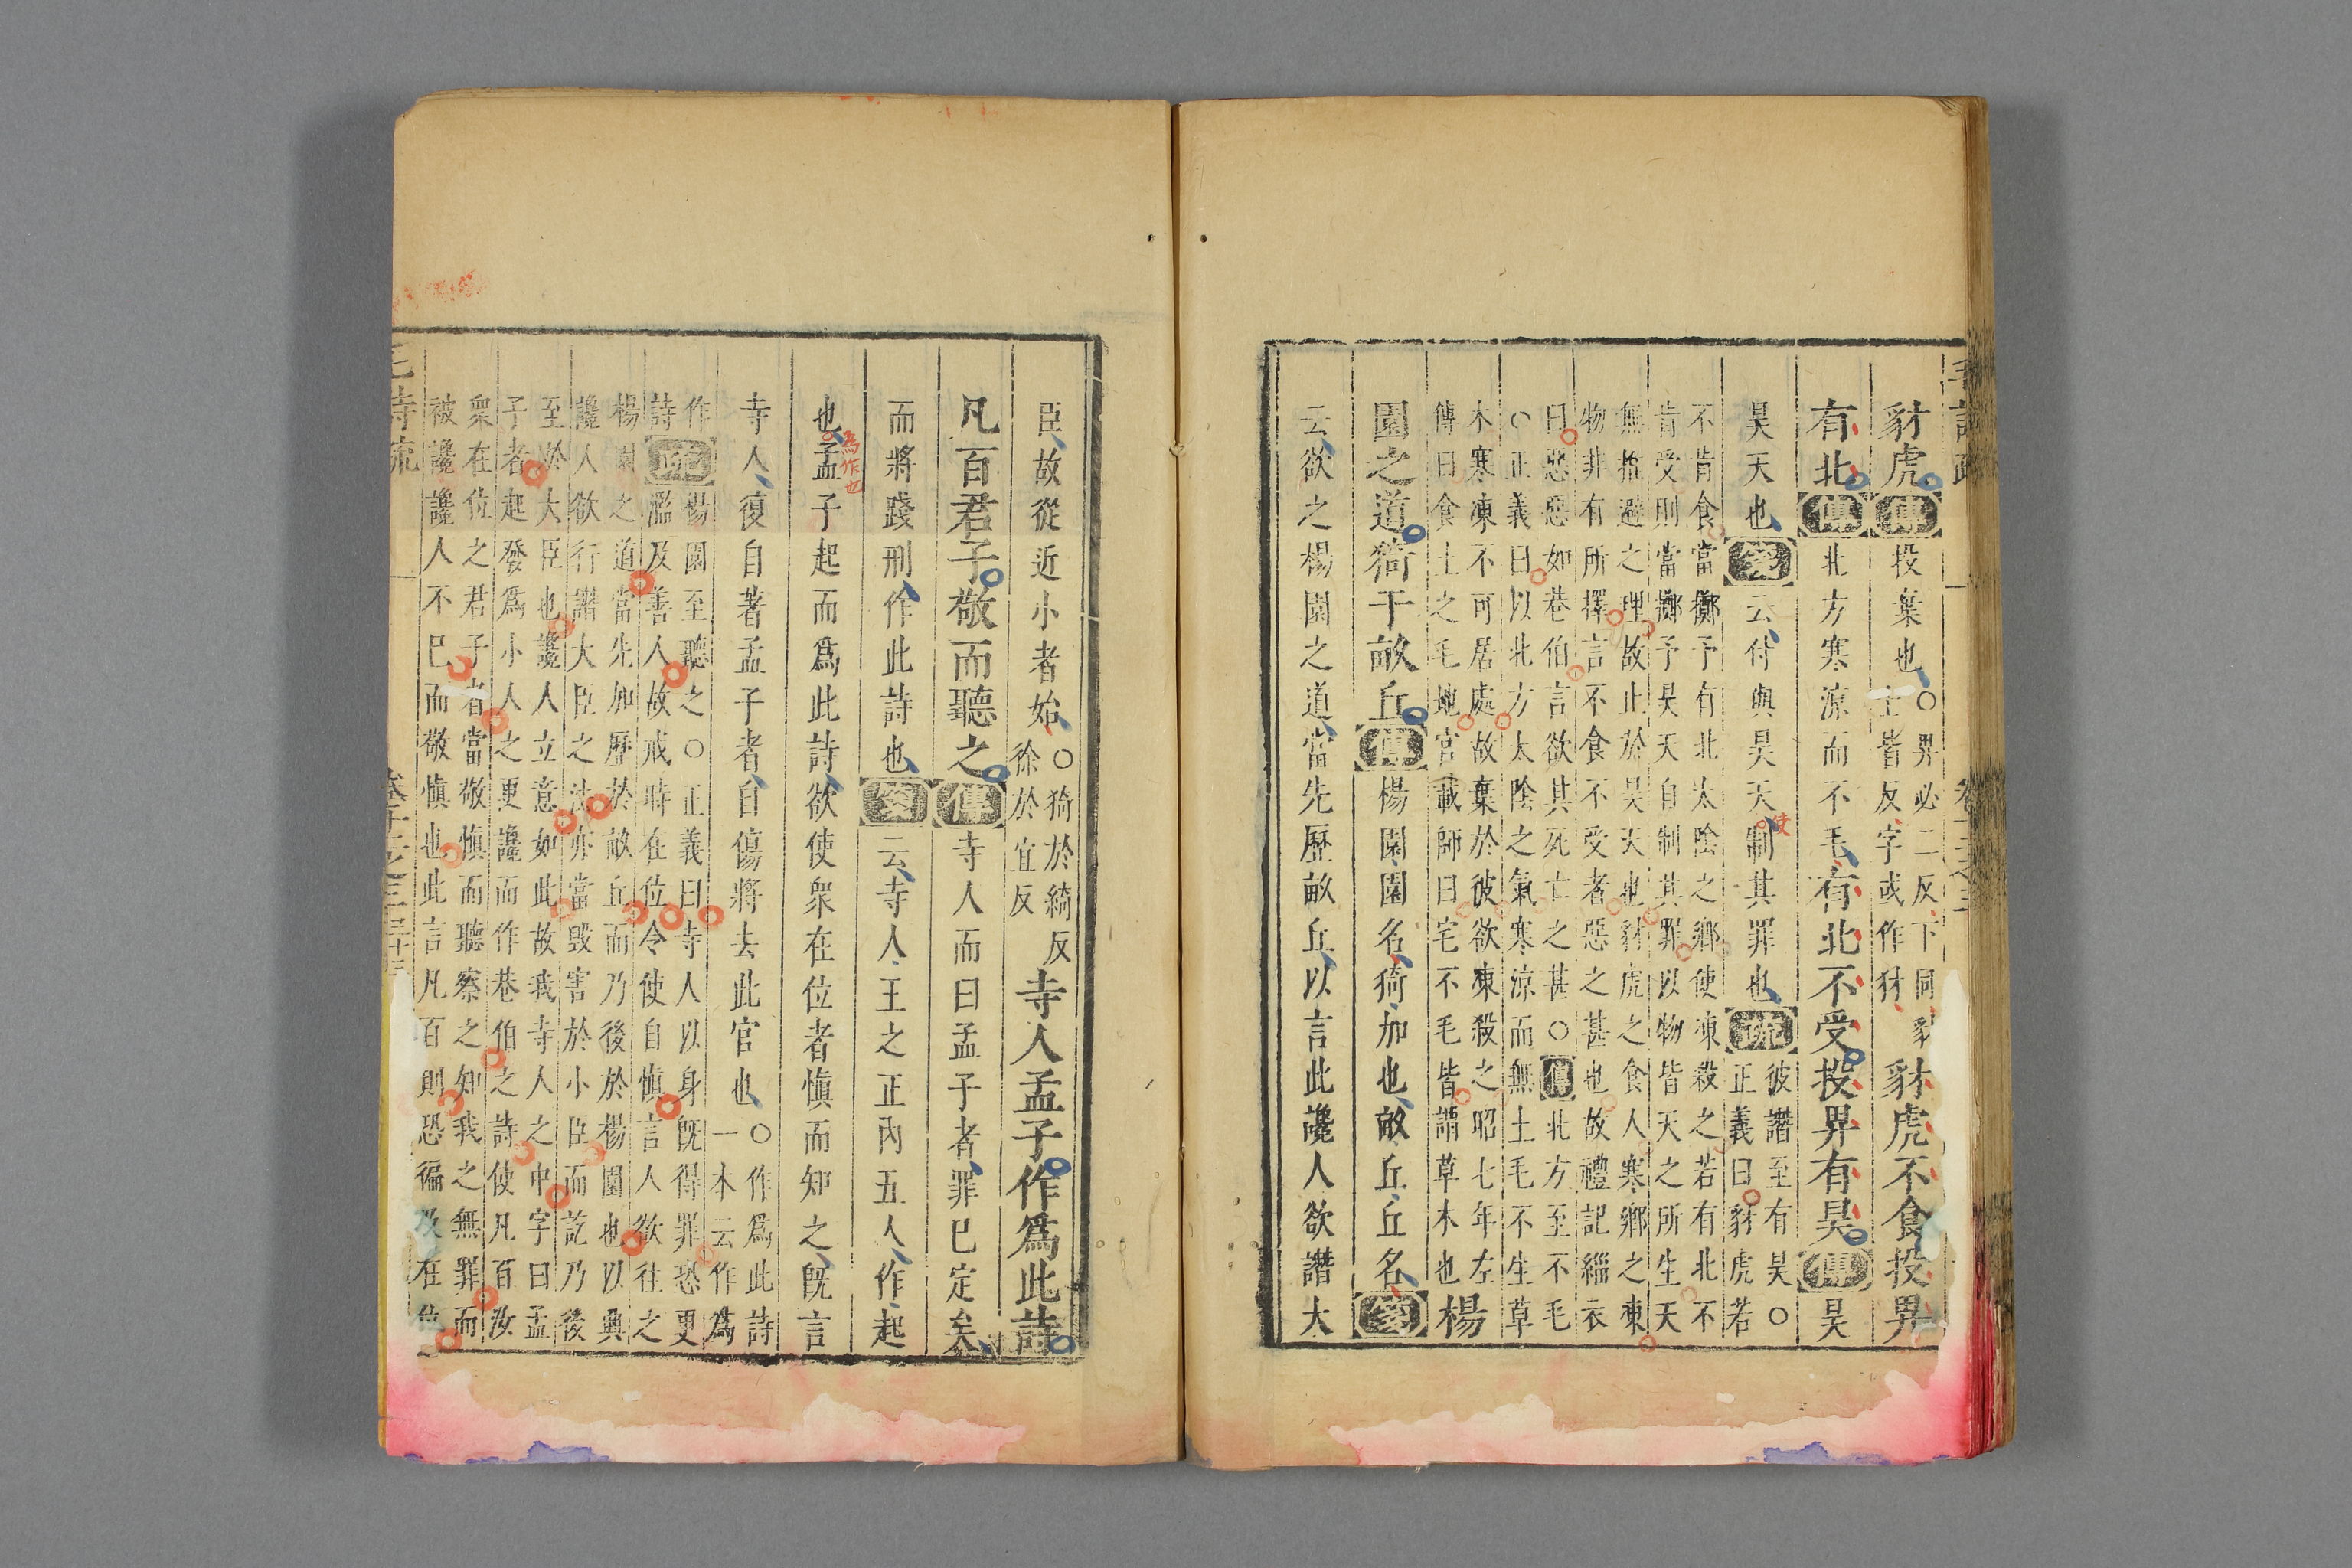 豺虎傳投棄也○畀必二反下同豺
土皆反字或作犲豺虎不食投畀
有北傳北方寒涼而不毛有北不受投畀有昊傳昊
昊天也箋云付與昊天制其罪也疏彼譖至有昊○
使
正義曰豺虎若
不肯食當擲予有北太陰之鄉使凍殺之若有北不
肯受則當擲予昊天自制其罪以物皆天之所生天
無推避之理故止於昊天也豺虎之食人寒鄉之凍
物非有所擇言不食不受者惡之甚也故禮記緇衣
曰惡惡如巷伯言欲其死亡之甚○傳北方至不毛
○正義曰以北方太陰之氣寒涼而無土毛不生草
木寒凍不可居處故棄於彼欲凍殺之昭七年左
傳曰食土之毛地官載師曰宅不毛皆謂草木也楊
園之道猗于畝丘傳楊園園名猗加也畝丘丘名箋
云欲之楊園之道當先歷畝丘以言此讒人欲譖大
臣故從近小者始○猗於綺反
徐於宜反寺人孟子作爲此詩
凡百君子敬而聽之傳寺人而曰孟子者罪已定矣
而將踐刑作此詩也箋云寺人王之正內五人作起
爲作也
也孟子起而爲此詩欲使衆在位者慎而知之旣言
寺人復自著孟子者自傷將去此官也○作爲此詩
一本云作爲
作
詩疏楊園至聽之○正義曰寺人以身旣得罪恐更
濫及善人故戒時在位令使自慎言人欲往之
楊園之道當先加歷於畝丘而乃後於楊園也以興
讒人欲行譖大臣之法亦當毀害於小臣而訖乃後
至於大臣也讒人立意如此故我寺人之中字曰孟
子者起發爲小人之更讒而作巷伯之詩使凡百汝
衆在位之君子者當敬慎而聽察之知我之無罪而
被讒讒人不已而敬慎也此言凡百則恐徧及在位